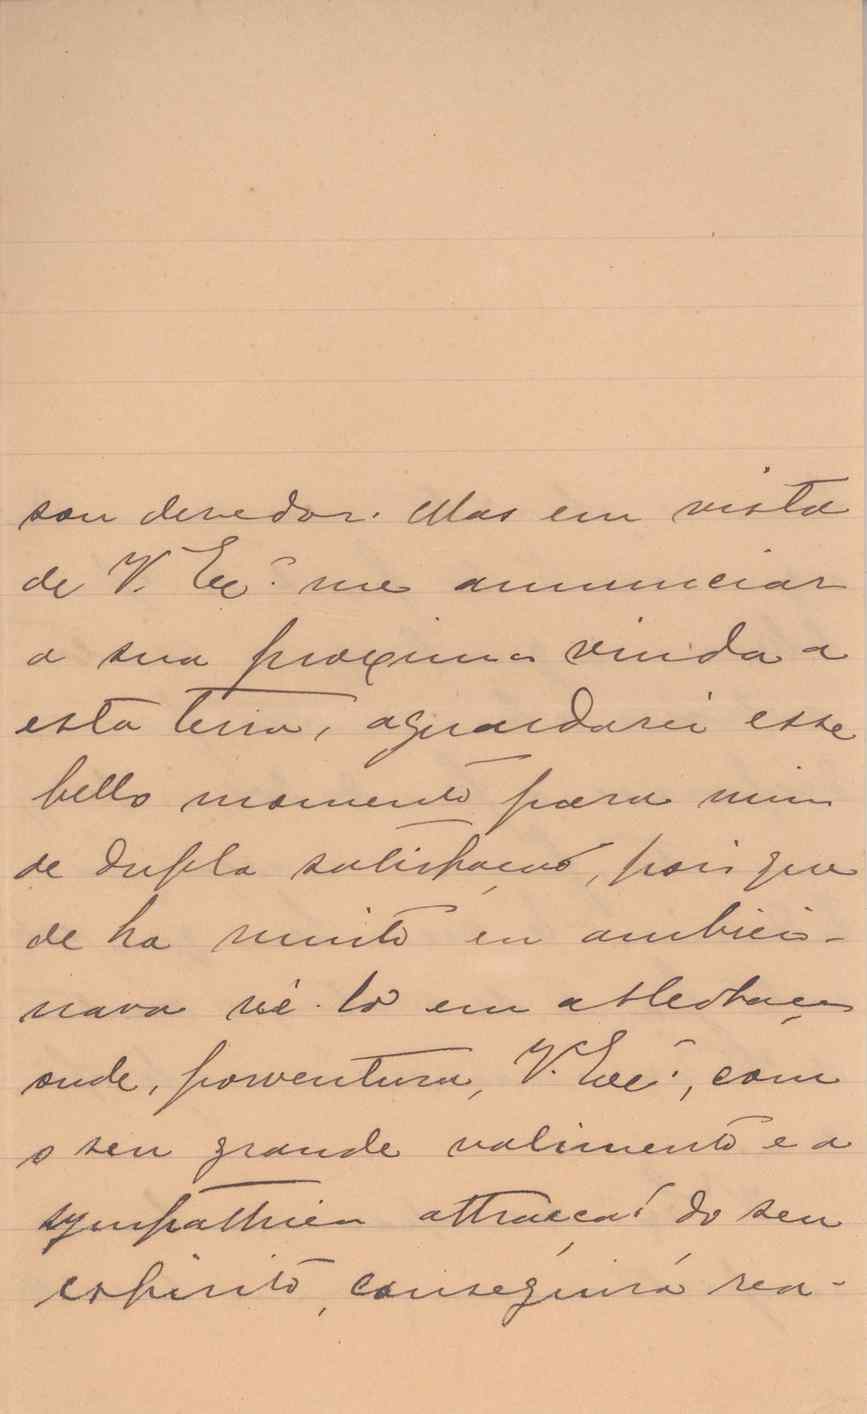 sou devedor. Mas em vista
de V. Exª. me annunciar
a sua proxima vinda a
esta terra, aguardarei esse
bello momento para mim
de dupla satisfação, pois que
de ha muito eu ambicio-
nava vê-lo em
onde, porventura, V. Exª., com
o seu grande valimento e a
sympathica attracção do seu
espirito, conseguirá rea-